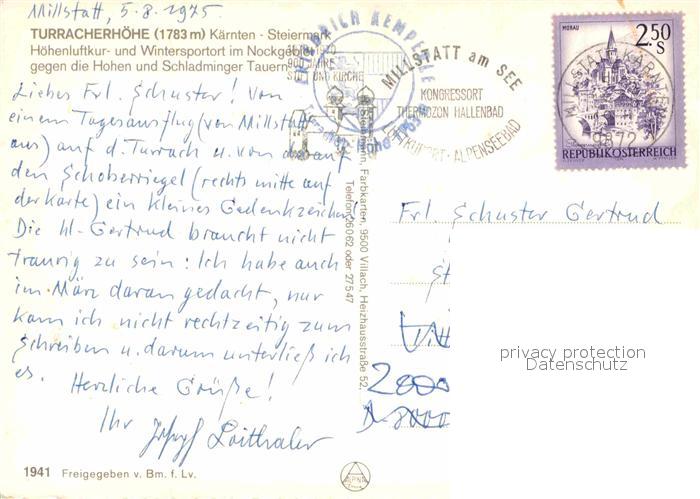 Millstatt, 5.8.1975.
TURRACHERHÖHE (1783 m) Kärnten - Steiermark
Höhenluftkur- und Wintersportort im Nockgebiet
gegen die Hohen und Schladminger Tauern
Liebes Frl. Schuster! Von
einem Tagesausflug (von Millstatt
aus) auf d. Turrach u. von da auf
den Schoberriegel (rechts mitte auf
der Karte) ein kleines Gedenkzeichen!
Die hl. Gertrud braucht nicht
traurig zu sein: Ich habe auch
im März daran gedacht, nur
kam ich nicht rechtzeitig zum
Schreiben u. darum unterließ ich
es. Herzliche Grüße!
Ihr Josef Leithaler
1941 Freigegeben v. Bm. f. Lv.
900 JAHRE
STIFT UND KIRCHE
MILLSTATT am SEE
KONGRESSORT
THERMOZON HALLENBAD
KURORT - ALPENSEEBAD
Farbkarten, 9500 Villach, Heizhausstraße 52,
Telefon 26062 oder 27547
MURAU
2.50
S
MILLSTATT, KÄRNTEN
9872
REPUBLIK ÖSTERREICH
Frl. Schuster Gertrud
privacy protection
Datenschutz
ALPINA